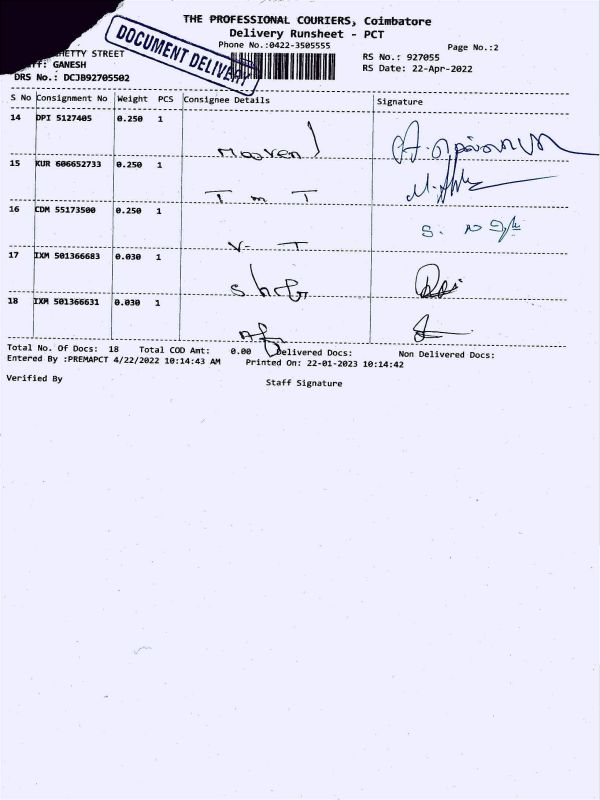 THE PROFESSIONAL COURIERS, Coimbatore
Delivery Runsheet - PCT
Phone No.:0422-3505555
Page No.:2
DOCUMENT DELIVERY
HETTY STREET
RS No.: 927055
ff: GANESH
RS Date: 22-Apr-2022
DRS No.: DCJB92705502
S No Consignment No Weight PCS Consignee Details Signature
14 DPI 5127405 0.250 1
15 KUR 606652733 0.250 1
T m T
16 CDM 55173500 0.250 1
V T
17 IXM 501366683 0.030 1
18 IXM 501366631 0.030 1
Total No. Of Docs: 18 Total COD Amt: 0.00 Delivered Docs: Non Delivered Docs:
Entered By :PREMAPCT 4/22/2022 10:14:43 AM Printed On: 22-01-2023 10:14:42
Verified By
Staff Signature